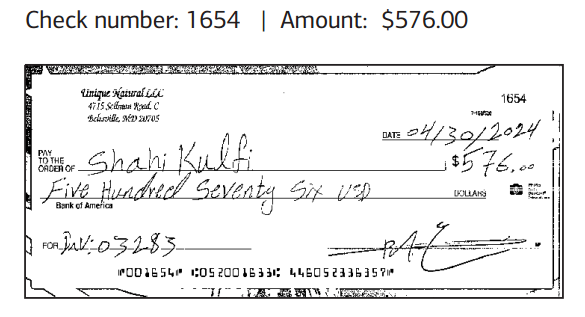 Check number: 1654 | Amount: $576.00
Unique Natural LLC
4715 Sellman Road, C
Beltsville, MD 20705
1654
DATE 04/30/2024
PAY TO THE ORDER OF Shahi Kulfi $576.00
Five Hundred Seventy Six USD DOLLARS
Bank of America
FOR INV: 03283
⑈001654⑈ ⑆052001633⑆ 446052336357⑈